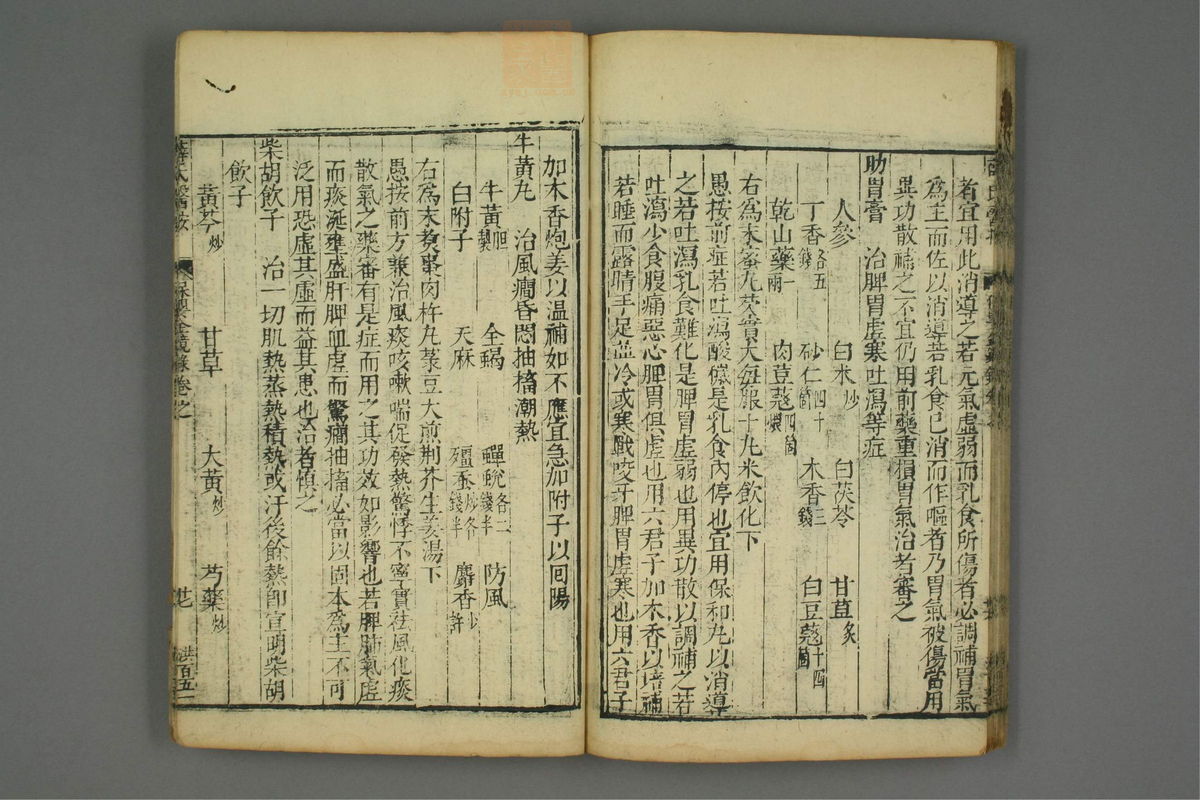 者宜用此消導之若元氣虛弱而乳食所傷者必調補胃氣
為主而佐以消導若乳食已消而作嘔者乃胃氣被傷當用
異功散補之不宜仍用前藥重損胃氣治者審之
助胃膏　治脾胃虛寒吐瀉等症
人參　白朮炒　白茯苓　甘草炙
丁香各五錢　砂仁四十箇　木香三錢　白豆蔻十四箇
乾山藥一兩　肉荳蔻四箇煨
右為末蜜丸芡實大每服十丸米飲化下
愚按前症若吐瀉酸穢是乳食內停也宜用保和丸以消導
之若吐瀉乳食難化是脾胃虛弱也用異功散以調補之若
吐瀉少食腹痛惡心脾胃俱虛也用六君子加木香以培補
若睡而露睛手足並冷或寒戰咬牙脾胃虛寒也用六君子
加木香炮姜以温補如不應宜急加附子以囘陽
牛黃丸　治風癇昏悶抽搐潮熱
牛黃胆製　全蝎　蟬蛻各二錢半　防風
白附子　天麻　殭蚕炒各錢半　麝香少許
右為末煑棗肉杵丸菉豆大煎荆芥生姜湯下
愚按前方兼治風痰咳嗽喘促發熱驚悸不寧實祛風化痰
散氣之藥審有是症而用之其功效如影響也若脾肺氣虛
而痰涎壅盛肝脾血虛而驚癇抽搐必當以固本為主不可
泛用恐虛其虛而益其患也治者慎之
柴胡飲子　治一切肌熱蒸熱積熱或汗後餘熱卽宣明柴胡
飲子
黃芩炒　甘草　大黃炒　芍藥炒
薛氏醫按　保嬰金鏡錄卷之　　洪百五